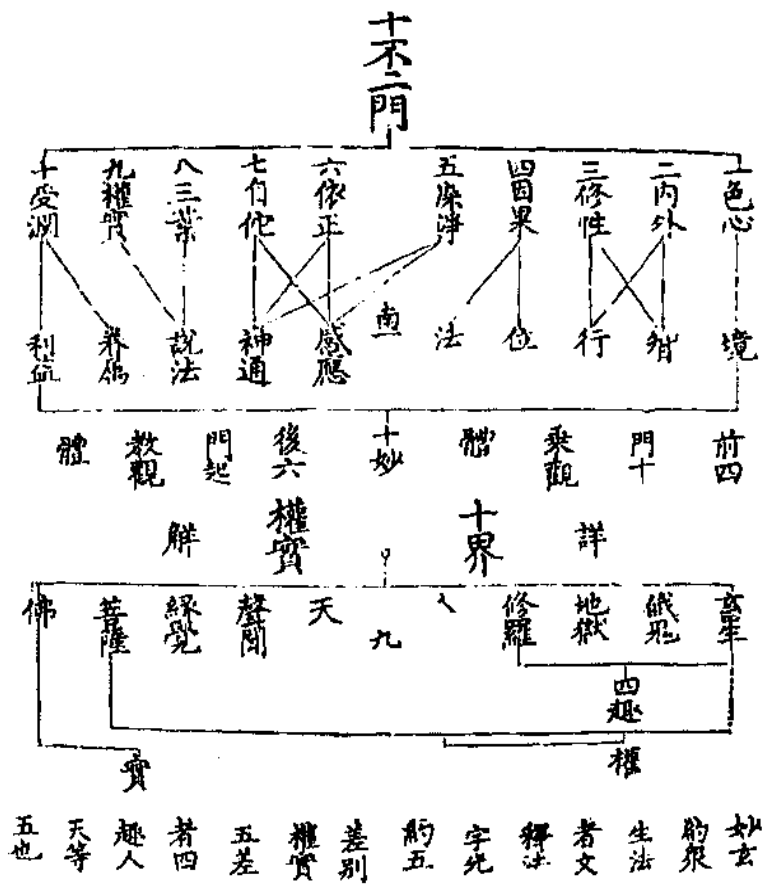 十不二門
一色心
二内外
三修性
四因果
五染淨
六依正
七自佗
八三業
九權實
十受潤
境
智
行
位
法
感應
神通
說法
眷属
利益
前四
門十
乘觀
體
十妙
後六
門起
教觀
體
詳
十界
權實
解
畜生
餓鬼
地獄
修羅
人
九
天
聲聞
緣覺
菩薩
佛
四趣
權
實
妙玄
約眾
生法
者文
釋法
字先
約五
差別
權實
五差
者四
趣人
天等
五也